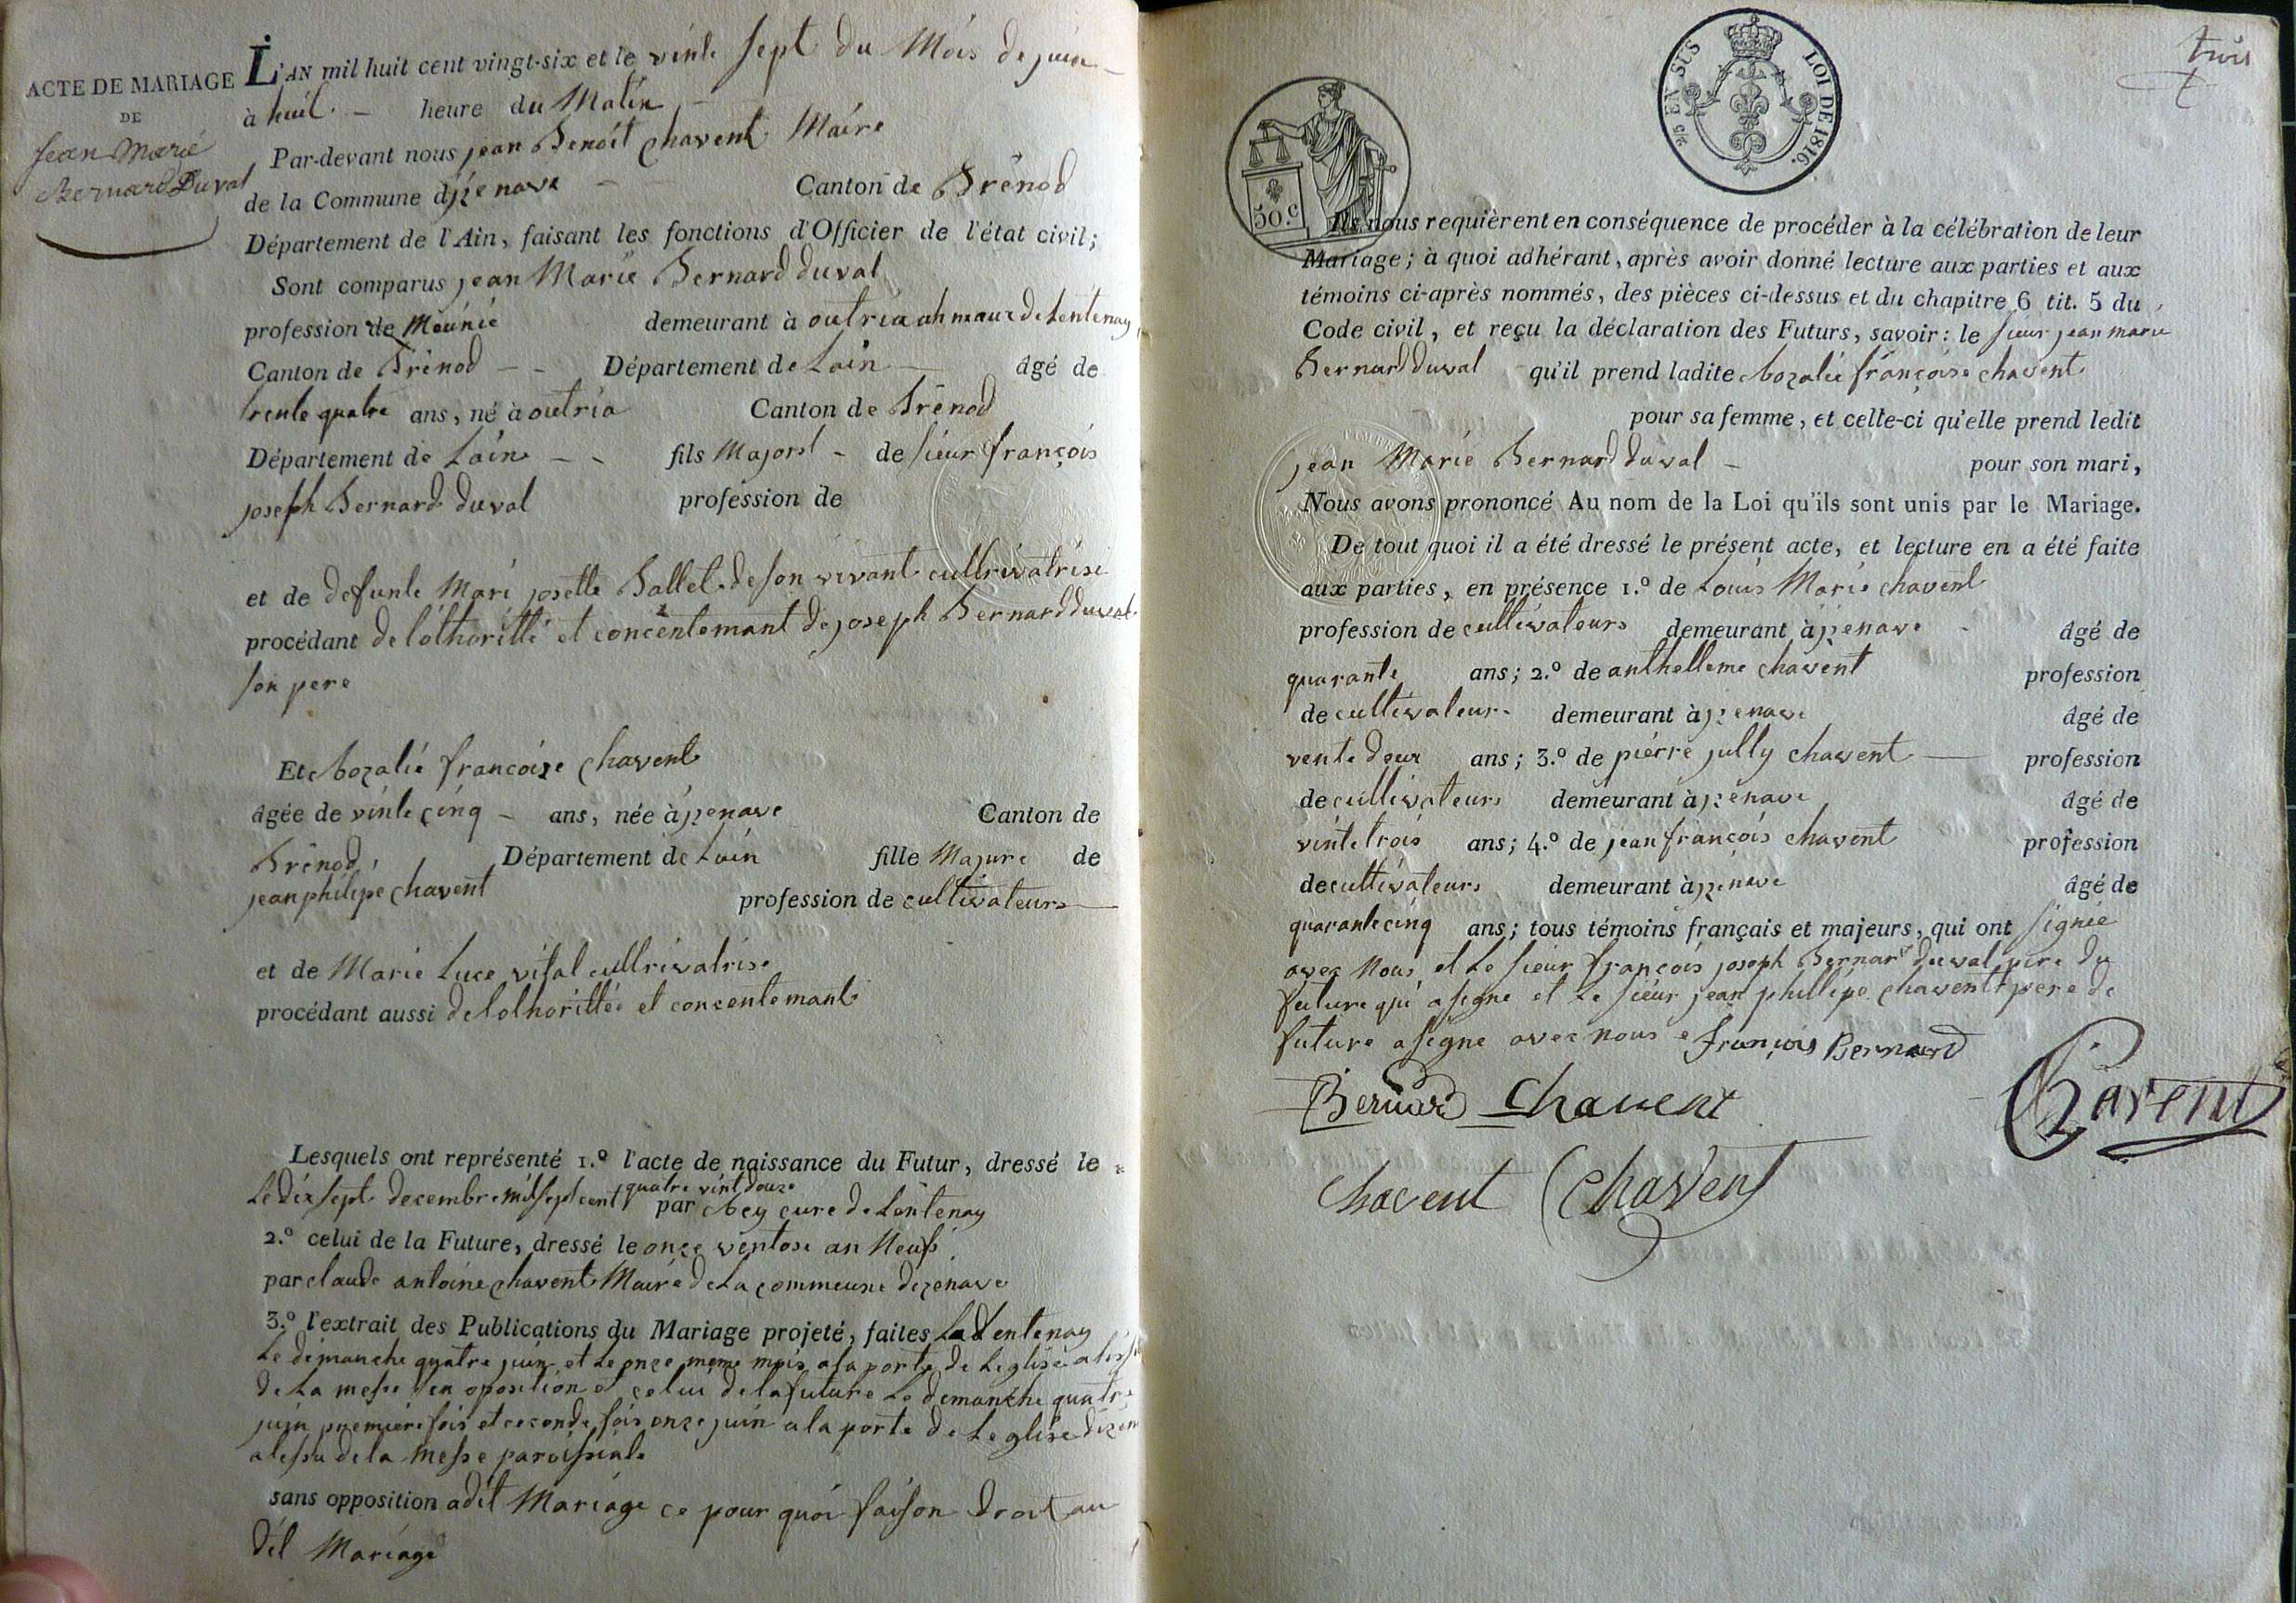 ACTE DE MARIAGE
DE
Jean Marié
Bernard Duval
L'AN mil huit cent vingt-six et le vinte sept du Mois de juin
à huit heure du Matin
Par-devant nous jean Benoit chavent Maire
de la Commune dizenave Canton de Brénod
Département de l'Ain, faisant les fonctions d'Officier de l'état civil;
Sont comparus jean Marie Bernard duval
profession de Meunié demeurant à outria ahmaux de Lentenay
Canton de Brénod Département de Lain âgé de
trente quatre ans, né à outria Canton de Brénod
Département de Lain fils Majort de sieur françois
joseph Bernard duval profession de
et de defunte Mari josette Ballet de son vivant cultrivatrise
procédant de lothoritté et concentemant de joseph Bernard duval
son pere
Et Rozalié francoise Chavent
âgée de vinte cinq ans, née à izenave Canton de
Brénod Département de Lain fille Majure de
jean philipe chavent profession de cultivateurs
et de Marie Luce vital cultrivatrise
procédant aussi de lothorittée et concentemant
Lesquels ont représenté 1.º l'acte de naissance du Futur, dressé le
Le dix sept decembre mil sept cent quatre vint douze par Rey cure de Lentenay
2.º celui de la Future, dressé le onze ventose an Neufs
par claude antoine chavent Maire de La commeune dizenave
3.º l'extrait des Publications du Mariage projeté, faites La Lentenay
Le dimanche quatre juin et Le onze meme mois a la porte de Leglise a lissu
de La messe sen oposition et celui de la future Le dimanche quatre
juin premiere fois et ceconde fois onze juin a la porte de Leglise dizen
a lessu de la Messe paroissiale
sans opposition adit Mariage ce pour quoi faison droit au
dit Mariage
trois
5/c EN SUS LOI DE 1816.
50.c
Ils nous requièrent en conséquence de procéder à la célébration de leur
Mariage; à quoi adhérant, après avoir donné lecture aux parties et aux
témoins ci-après nommés, des pièces ci-dessus et du chapitre 6 tit. 5 du
Code civil, et reçu la déclaration des Futurs, savoir: le sieur jean marie
Bernard duval qu'il prend ladite Rozalié françoise chavent
pour sa femme, et celle-ci qu'elle prend ledit
jean Marie Bernard duval pour son mari,
Nous avons prononcé Au nom de la Loi qu'ils sont unis par le Mariage.
De tout quoi il a été dressé le présent acte, et lecture en a été faite
aux parties, en présence 1.º de Louis Marie chavent
profession de cultivateurs demeurant à izenave âgé de
quarante ans; 2.º de anthelleme chavent profession
de cultivateur demeurant à izenave âgé de
vente deux ans; 3.º de pierre jully chavent profession
de cultivateurs demeurant à izénave âgé de
vinte trois ans; 4.º de jean françois chavent profession
de cultivateurs demeurant à izenave âgé de
quarante cinq ans; tous témoins français et majeurs, qui ont signée
avec Nous et Le sieur françois joseph Bernard duval pere du
future qui a signe et Le sieur jean phillipe chavent pere de
future a signe avec nous françois Bernard
Bernard Chavent Chavent
Chavent Chavent